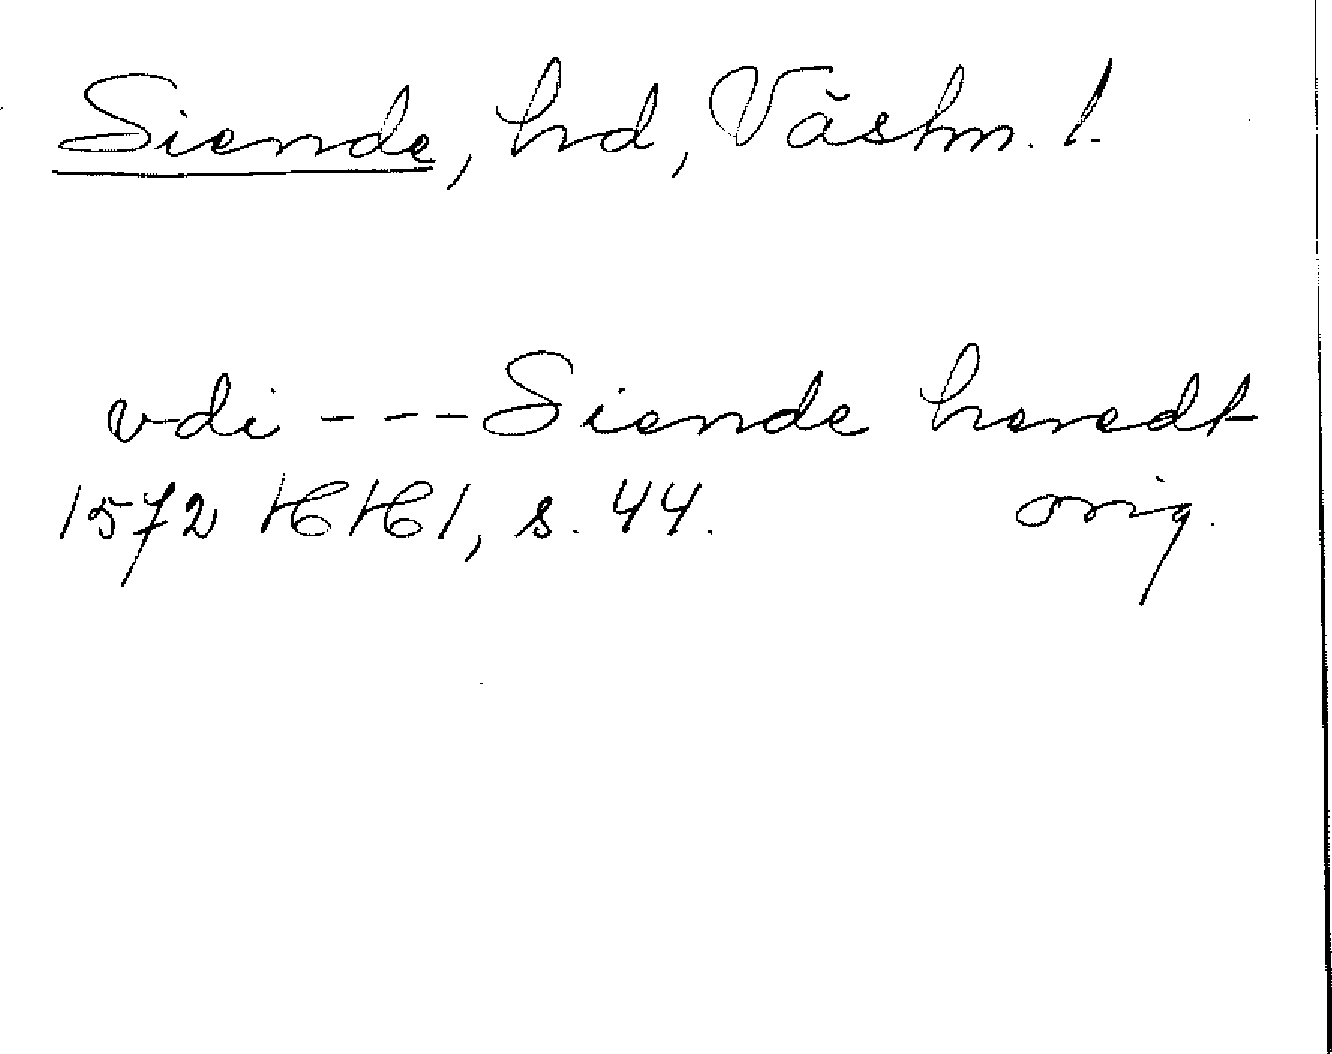 Siende, hd, Västm. l.
vdi --- Siende heredt
1572 HH 1, s. 44. orig.